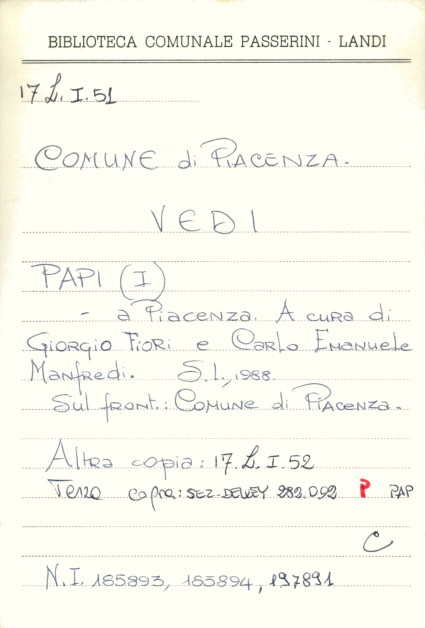 BIBLIOTECA COMUNALE PASSERINI - LANDI
17 L. I. 51
COMUNE di PIACENZA.
VEDI
PAPI (I)
- a Piacenza. A cura di
Giorgio Fiori e Carlo Emanuele
Manfredi. S.l., 1988.
Sul front.: Comune di Piacenza.
Altra copia: 17. L. I. 52
Terza copia: SEZ. DEWEY 282.092 P PAP
C
N.I. 165893, 165894, 197891